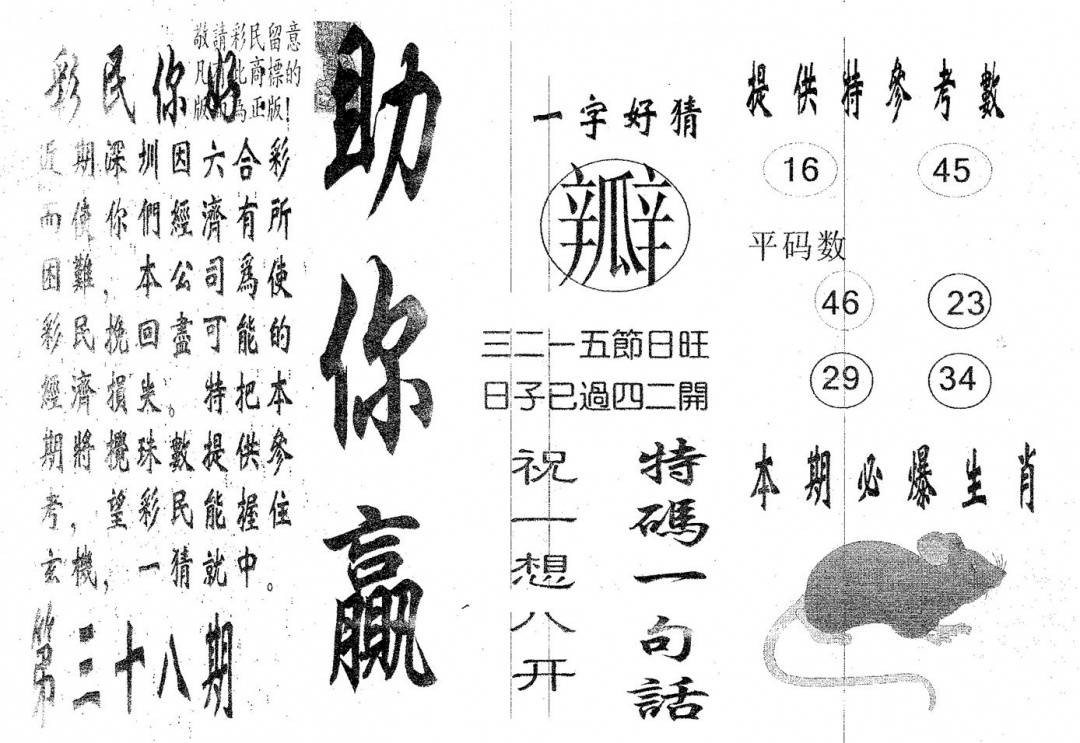 敬請彩民留意
凡 商標的
版 為正版!
彩民你好
近期深圳因六合彩
而使你們經濟有所
困難,本公司爲使
彩民挽回盡可能的
經濟損失。特把本
期將攪珠數提供參
考,望彩民能握住
玄機,一猜就中。
第三十八期
助你贏
一字好猜
瓣
三二一五節日旺
日子已過四二開
特碼一句話
祝一想八开
提供特參考數
16 45
平码数
46 23
29 34
本期必爆生肖